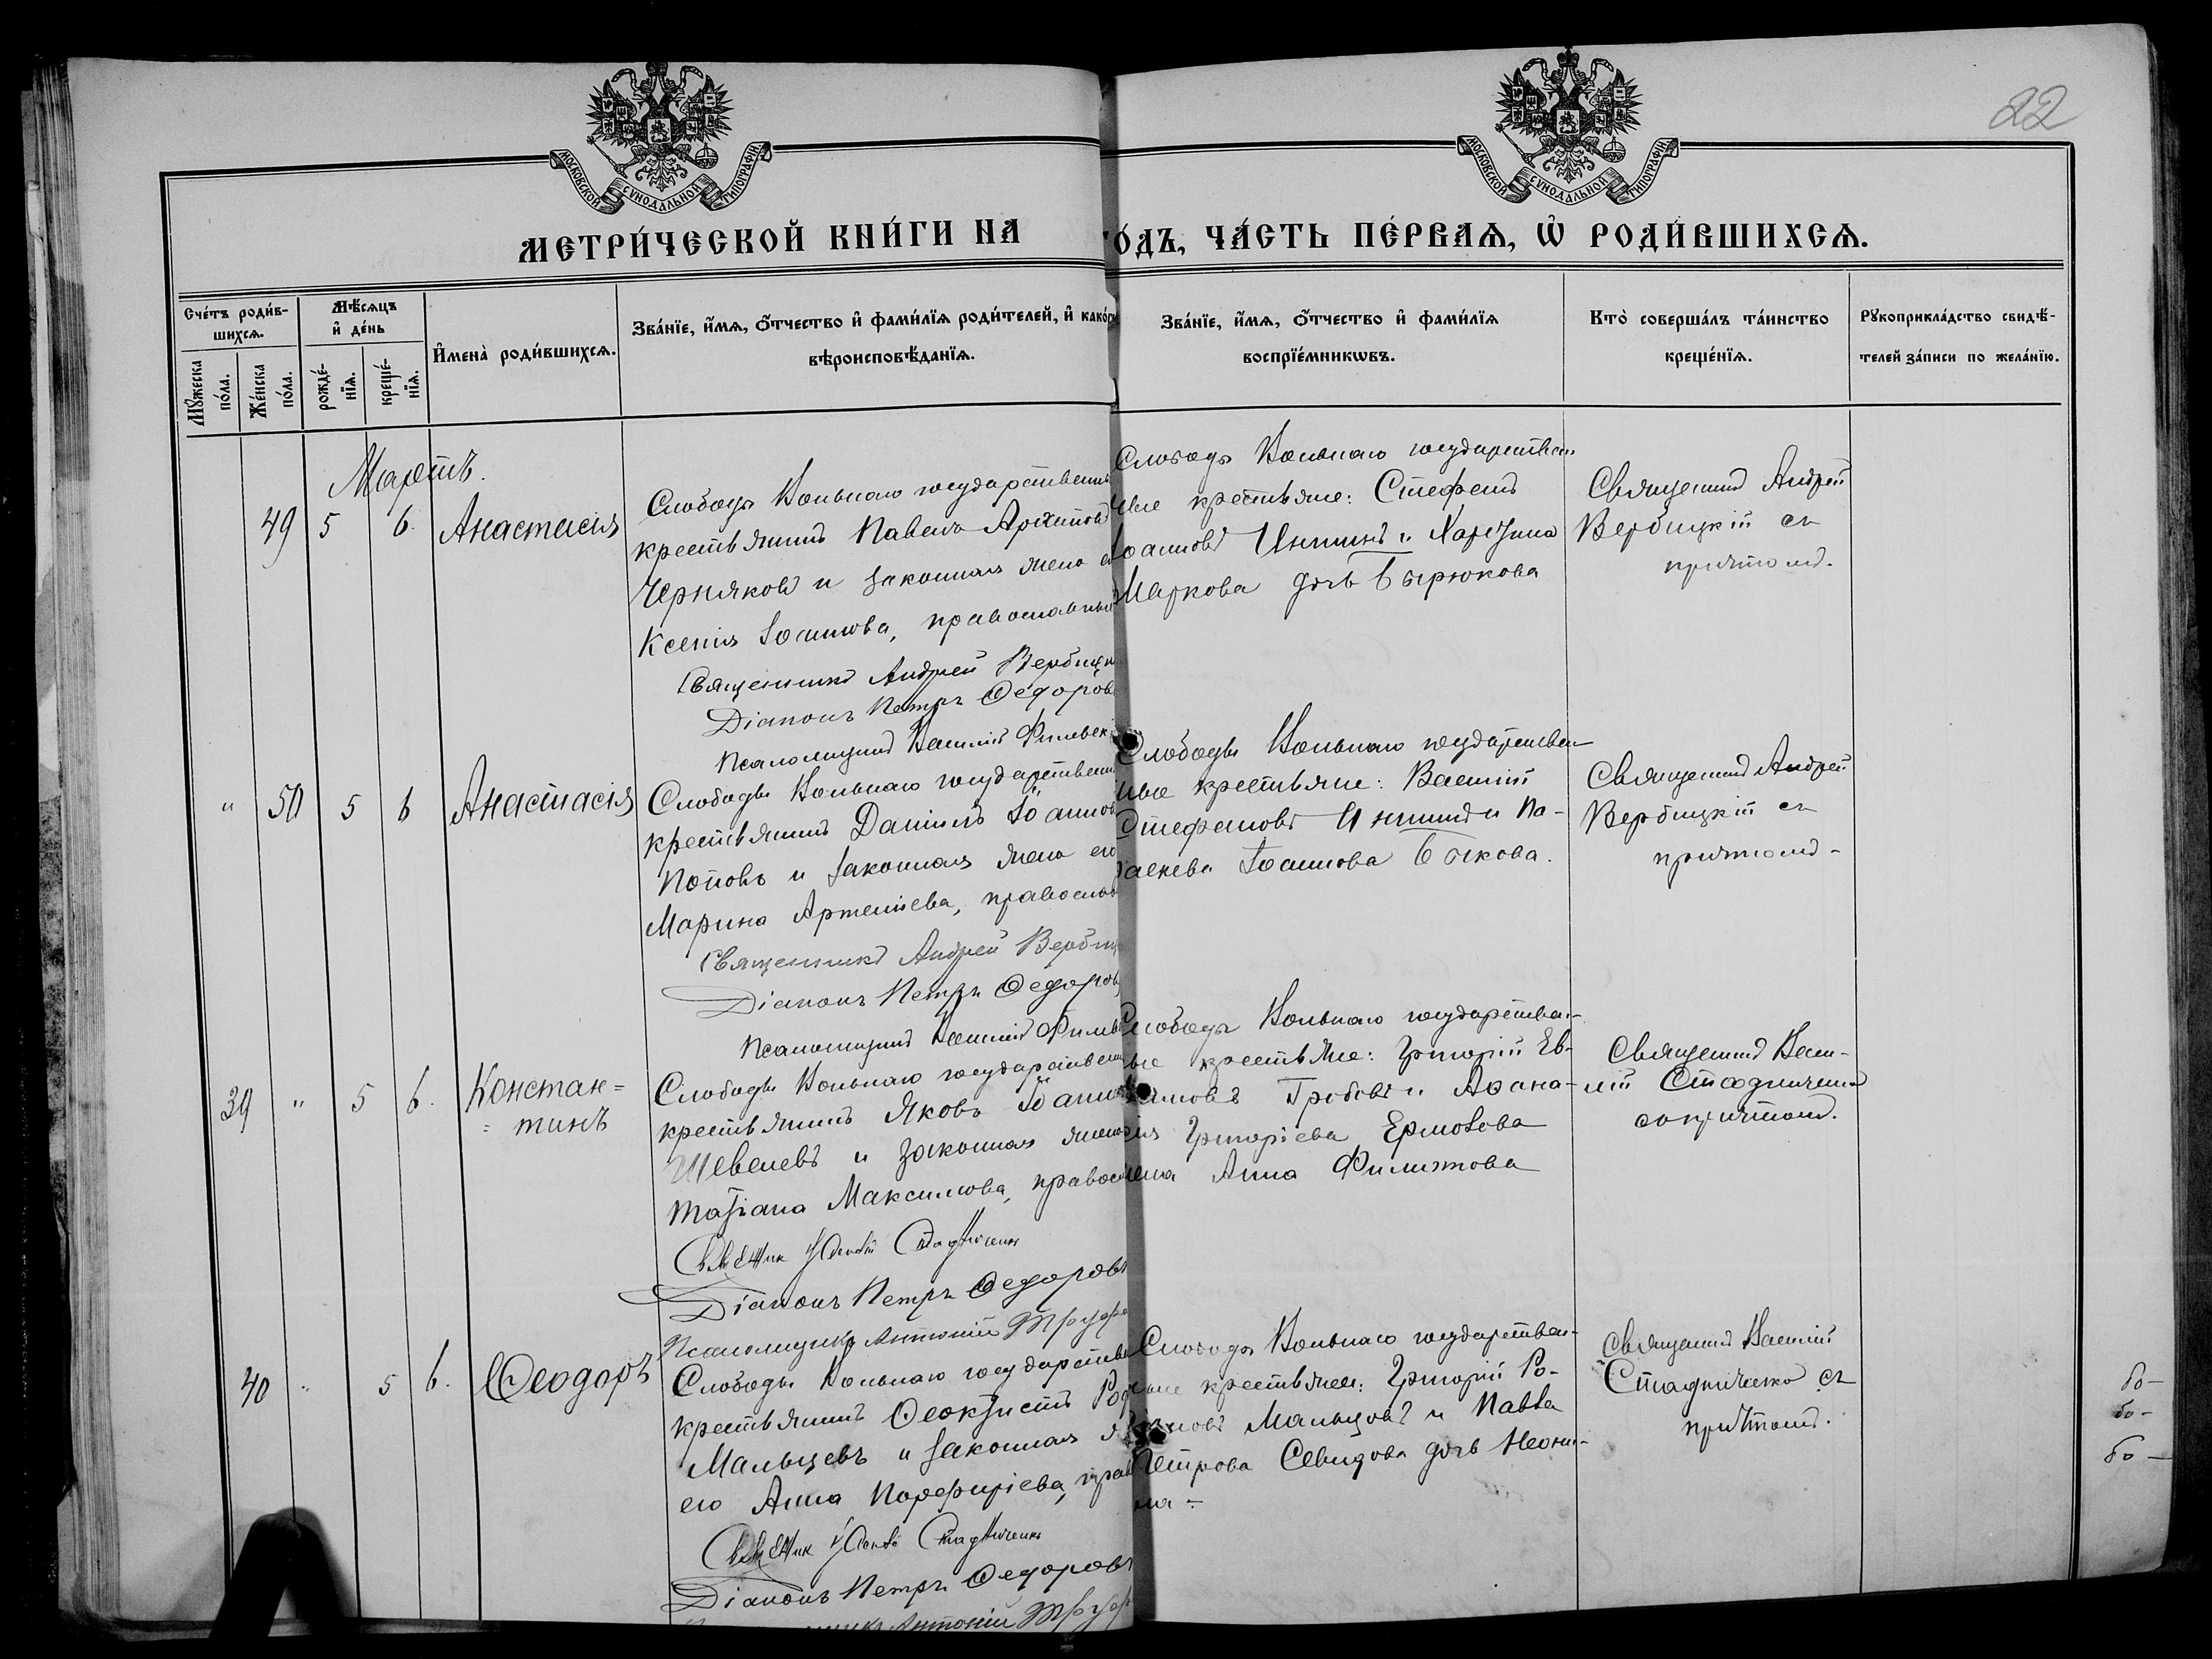 22
МОСКОВСКОЙ СѴНОДАЛЬНОЙ ТИПОГРАФІИ
МОСКОВСКОЙ СѴНОДАЛЬНОЙ ТИПОГРАФІИ
МЕТРИ́ЧЕСКОЙ КНИ́ГИ НА
ГО́ДЪ, ЧА́СТЬ ПЕ́РВАѦ, Ѡ҆ РОДИ́ВШИХСѦ.
Сче́тъ роди́в-
шихсѧ.
Мꙋ́жеска
по́ла.
Же́нска
по́ла.
Мѣ́сѧцъ
и҆ де́нь
рожде́-
нїѧ.
креще́-
нїѧ.
И҆мена̀ роди́вшихсѧ.
Зва́нїе, и҆́мѧ, ѻ҆́тчество и҆ фами́лїѧ роди́телей, и҆ како́гѡ
вѣроисповѣ́данїѧ.
Зва́нїе, и҆́мѧ, ѻ҆́тчество и҆ фами́лїѧ
воспрїе́мникѡвъ.
Кто̀ соверша́лъ та́инство
креще́нїѧ.
Рꙋкоприкла́дство свидѣ́-
телей за́писи по жела́нїю.
Мартъ.
49 5 6. Анастасія
Слободы Вольнаго государственн
крестьянинъ Павелъ Архиповъ
Черняковъ и законная жена е
Ксенія Іоаннова, православны
Священникъ Андрей Вербицк
Діаконъ Петръ Ѳедоровъ
Псаломщикъ Василій
Слободы Вольнаго государствен
ные крестьяне: Стефанъ
Іоанновъ Ининъ и Харитина
Маркова дочь Бирюкова
Священникъ Андрей
Вербицкій съ
причтомъ.
" 50 5 6 Анастасія
Слободы Вольнаго государственн
крестьянинъ Даніилъ Іоаннов
Поповъ и законная жена его
Марина Артемиева, православ
Священникъ Андрей Вербиц
Діаконъ Петръ Ѳедоровъ
Псаломщикъ Василій
Слободы Вольнаго государствен-
ные крестьяне: Василій
Стефановъ Ининъ и Па-
раскева Іоаннова Быкова.
Священникъ Андрей
Вербицкій съ
причтомъ-
39 " 5 6. Констан=
=тинъ
Слободы Вольнаго государственн
крестьянинъ Яковъ Іоанн
Шевелевъ и законная жена
Татіана Максимова, правосл
Василій Стадниченко
Діаконъ Петръ Ѳедоровъ
Псаломщикъ Антоній
Слободы Вольнаго государствен-
ные крестьяне: Григорій Ев-
Гробовъ и Аѳана-
Григоріева Ермолова
жена Анна Филиппова
Священникъ Васи-
лій Стадниченко
съ причтомъ.
40 " 5 6. Ѳеодоръ
Слободы Вольнаго государстве
крестьянинъ Ѳеоктистъ Род
Мальцевъ и законная ж
его Анна Порфиріева, прав
Василій Стадниченко
Діаконъ Петръ Ѳедоровъ
Антоній
Слободы Вольнаго государствен-
ные крестьяне: Григорій Ро-
Мальцовъ и Павла
Петрова Севидова дочь Неони-
ла-
Священникъ Василій
Стадниченко съ
причтомъ.